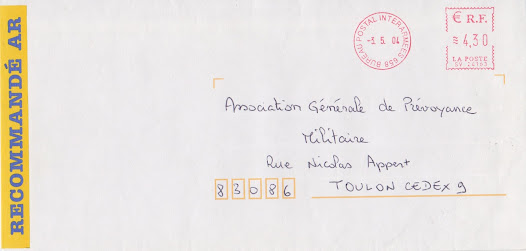 RECOMMANDÉ AR
BUREAU POSTAL INTERARMEES 658
-3. 5. 04
€ R.F.
4,30
LA POSTE
Association Générale de Prévoyance
Militaire
Rue Nicolas Appert
83086 TOULON CEDEX 9